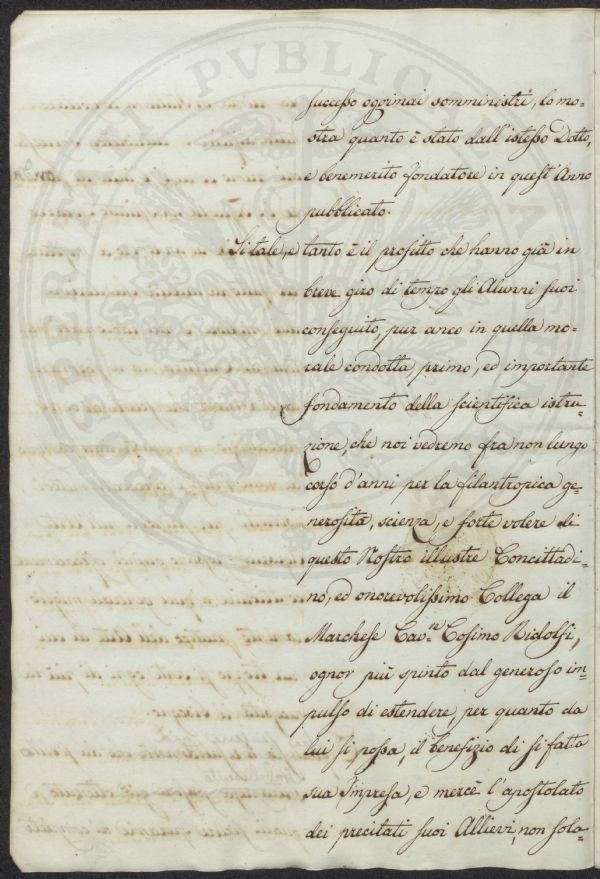 successo oggimai somministri, lo mo=
stra quanto è stato dall'istesso Dotto,
e benemerito fondatore in quest'Anno
pubblicato.
Si tale, e tanto è il profitto che hanno già in
breve giro di tempo gli Alunni suoi
conseguito, pur anco in quella mo=
rale condotta, primo, ed importante
fondamento della scientifica istru=
zione, che noi vedremo fra non lungo
corso d'anni per la filantropica ge=
nerosità, scienza, e forte volere di
questo Nostro illustre Concittadi=
no, ed onorevolissimo Collega il
Marchese Cav.re Cosimo Ridolfi,
ognor più spinto dal generoso im=
pulso di estendere, per quanto da
lui si possa, il benefizio di sifatta
sua Impresa, e mercè l'apostolato
dei precitati suoi Allievi, non sola=